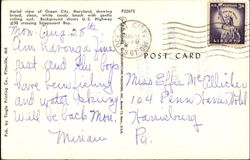 Aerial view of Ocean City, Maryland, showing
broad, clean, white sandy beach with gently
rolling surf. Background shows U.S. Highway
#50 crossing Sinepuxent Bay.
P22675
Mon. Aug 28th
Am having fun
just good the boys
have been fishing
and water skiing
will be back Mon.
Miriam
POST CARD
Miss Effie McAllister
104 Penn
Harrisburg
Pa.
Pub. by Tingle Printing Co., Pittsville, Md.